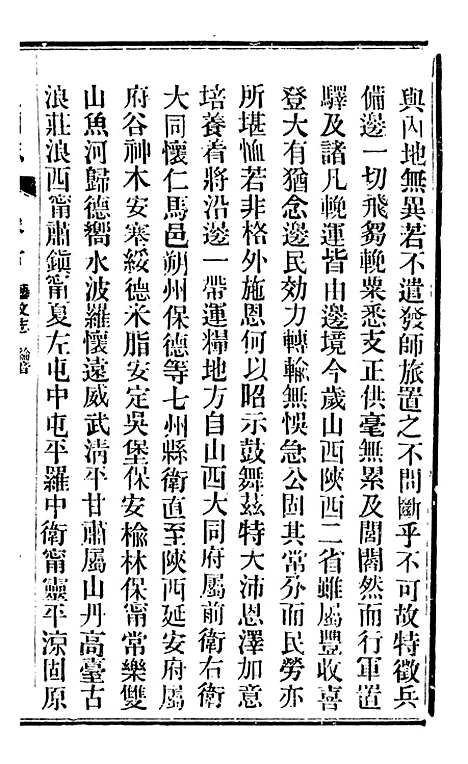 與內地無異若不遣發師旅置之不問斷乎不可故特徵兵
備邊一切飛芻輓粟悉支正供毫無累及閭閻然而行軍置
驛及諸凡輓運皆由邊境今歲山西陝西二省雖屬豐收喜
登大有猶念邊民効力轉輸無悞急公固其常分而民勞亦
所堪恤若非格外施恩何以昭示鼓舞茲特大沛恩澤加意
培養着將沿邊一帶運糧地方自山西大同府屬前衛右衛
大同懷仁馬邑朔州保德等七州縣衛直至陝西延安府屬
府谷神木安塞綏德米脂安定吳堡保安榆林保甯常樂雙
山魚河歸德嚮水波羅懷遠威武清平甘肅屬山丹高臺古
浪莊浪西甯肅鎮甯夏左屯中屯平羅中衛甯靈平涼固原
藝文志